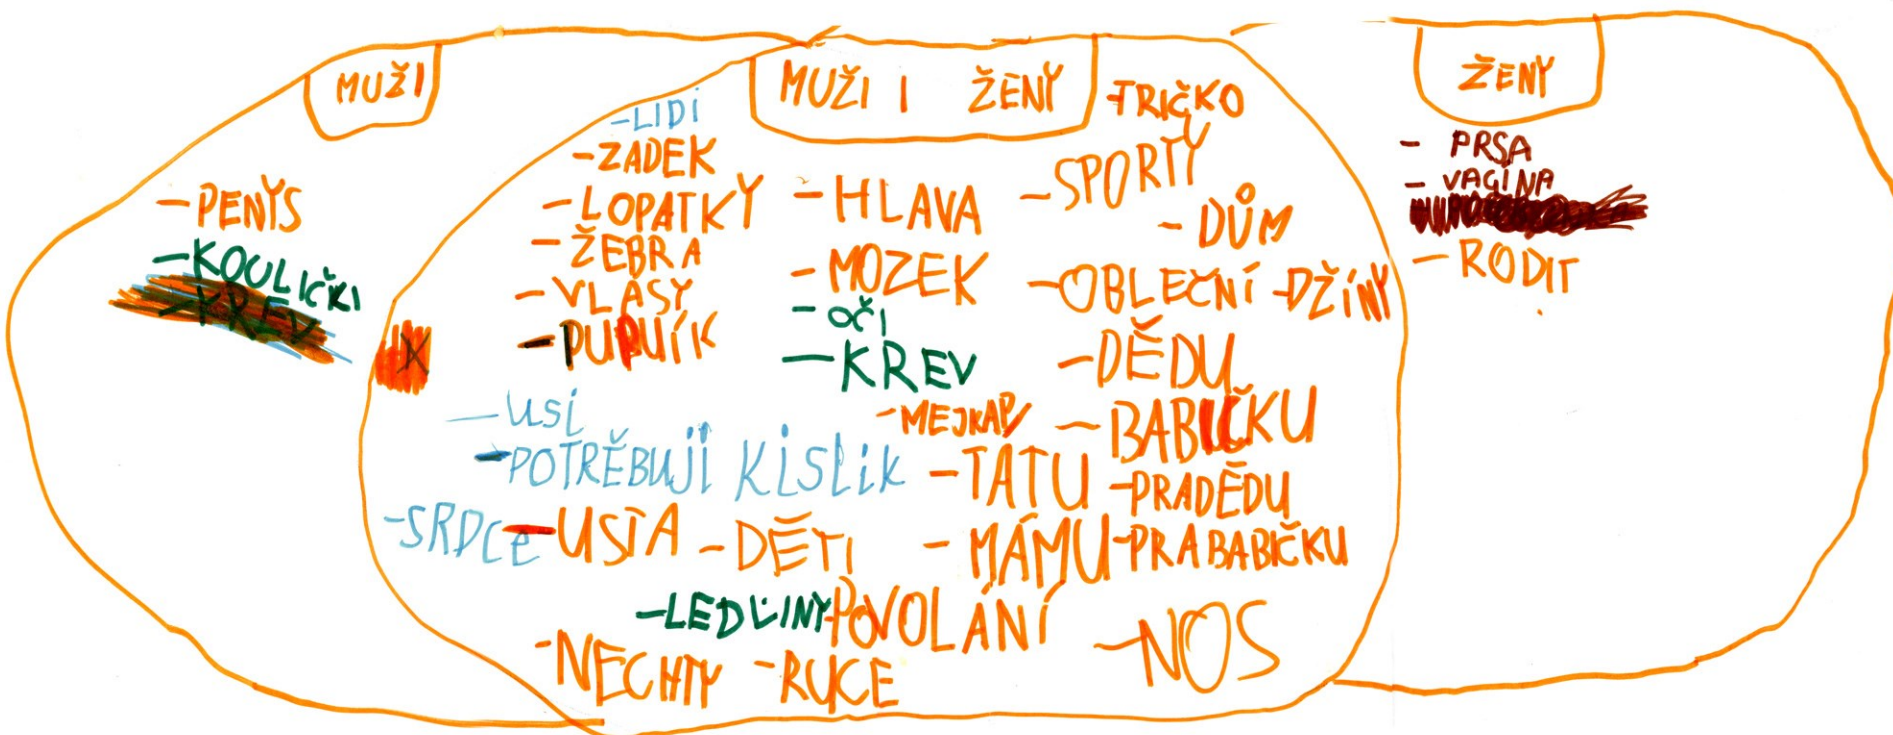 MUŽI
- PENYS
- KOULIČKI
- KREV
MUŽI I ŽENY
- LIDI
- ZADEK
- LOPATKY
- ŽEBRA
- VLASY
- PUPUÍK
- USI
- POTRĚBUJÍ KISLIK
- SRDCe
- USTA
- DĚTI
- LEDVINY
- NECHTY
- RUCE
- HLAVA
- MOZEK
- OČI
- KREV
- MEJKAP
- TATU
- MÁMU
- POVOLÁNÍ
- TRIČKO
- SPORTY
- DŮM
- OBLEČNÍ
- DŽÍNY
- DĚDU
- BABIČKU
- PRADĚDU
- PRABABIČKU
- NOS
X
ŽENY
- PRSA
- VAGINA
- RODIT